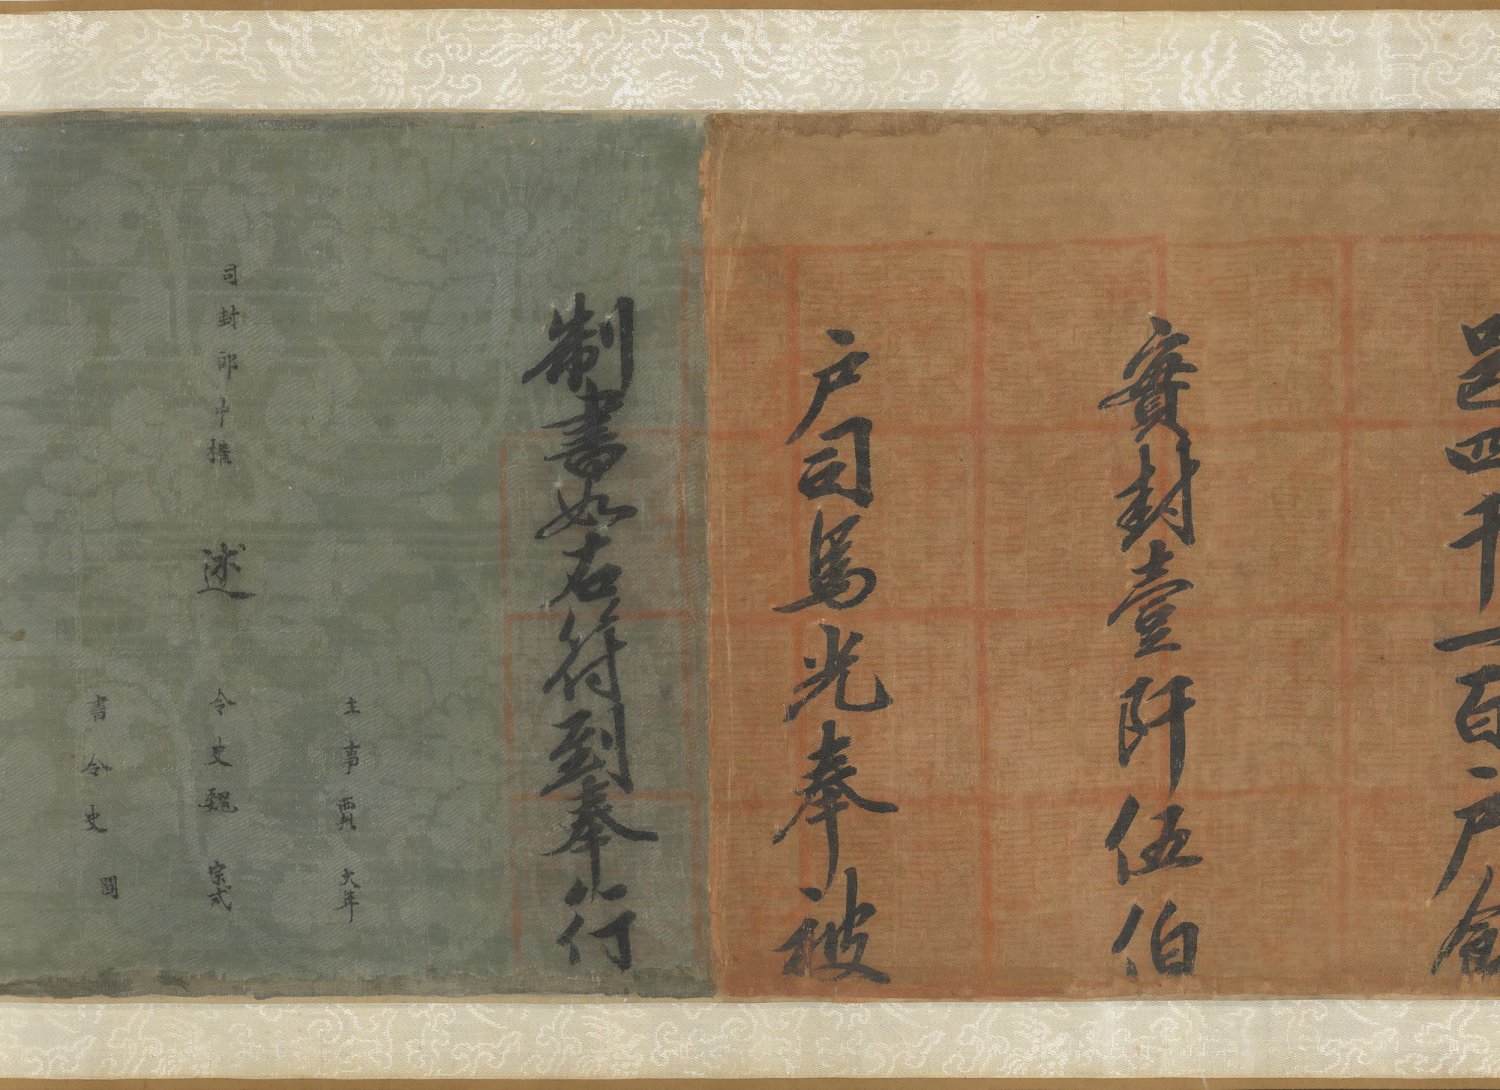 邑四千一百户食
實封壹阡伍伯
户司馬光奉被
制書如右符到奉行
主事賈大年
司封郎中權 述 令史魏宗式
書令史